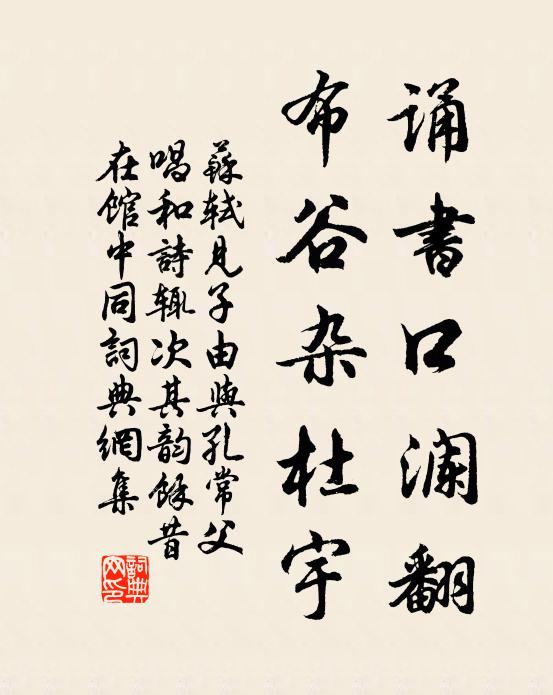 诵書口澜翻
布谷杂杜宇
蘇轼見子由與孔常父
唱和詩辄次其韵馀昔
在馆中同詞典網集
詞典
网印